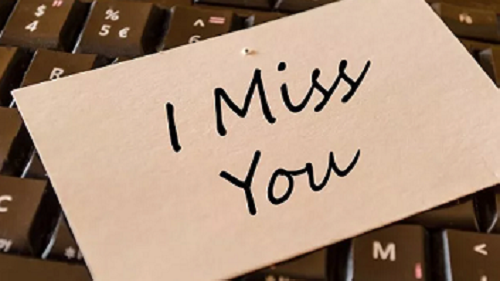 $
4
%
5 €
^
6
R
I Miss
You
C
M
<